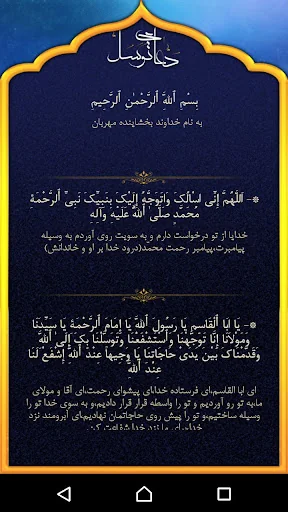 دعای توسل
بِسْمِ ٱللَّهِ ٱلرَّحْمَٰنِ ٱلرَّحِيمِ
به نام خداوند بخشاینده مهربان
*- اَللّهُمَّ اِنّی اَسْالُکَ وَاَتَوَجَّهُ اِلَیْکَ بِنَبِیِّکَ نَبِیِّ الرَّحْمَةِ
مُحَمَّدٍ صَلَّی اللّهُ عَلَیْهِ وَآلِهِ
خدایا از تو درخواست دارم و به سویت روی آوردم به وسیله
پیامبرت،پیامبر رحمت محمد(درود خدا بر او و خاندانش)
*- یا اَبَا الْقاسِمِ یا رَسُولَ اللّهِ یا اِمامَ الرَّحْمَةِ یا سَیِّدَنا
وَمَوْلانا اِنّا تَوَجَّهْنا وَاسْتَشْفَعْنا وَتَوَسَّلْنا بِکَ اِلَی اللّهِ
وَقَدَّمْناکَ بَیْنَ یَدَیْ حاجاتِنا یا وَجیهاً عِنْدَ اللّهِ اِشْفَعْ لَنا
عِنْدَ اللّهِ
ای ابا القاسم،ای فرستاده خدای پیشوای رحمت،ای آقا و مولای
ما،به تو رو آوردیم و تو را واسطه قرار قرار دادیم،و به سوی خدا تو را
وسیله ساختیم،و تو را پیش روی حاجاتمان نهادیم،ای آبرومند نزد
خدا،برای ما نزد خدا شفاعت کن